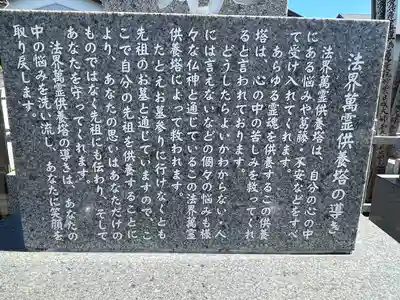 法界萬霊供養塔の導き
法界萬霊供養塔は、自分の心の中
にある悩みや葛藤・不安などをすべ
て受け入れてくれます。
あらゆる霊魂を供養するこの供養
塔は、心の中の苦しみを救ってくれ
ると言われております。
どうしたらよいかわからない・人
には言えないなどの個々の悩みも様
々な仏神と通じているこの法界萬霊
供養塔によって救われます。
たとえお墓参りに行けなくとも
先祖のお墓と通じていますので、こ
こで自分の先祖を供養することに
より、あなたの思いはあなただけの
ものではなく先祖にも伝わり、そして
あなたを守ってくれます。
法界萬霊供養塔の導きは、あなたの
中の悩みを洗い流し、あなたに笑顔を
取り戻します。